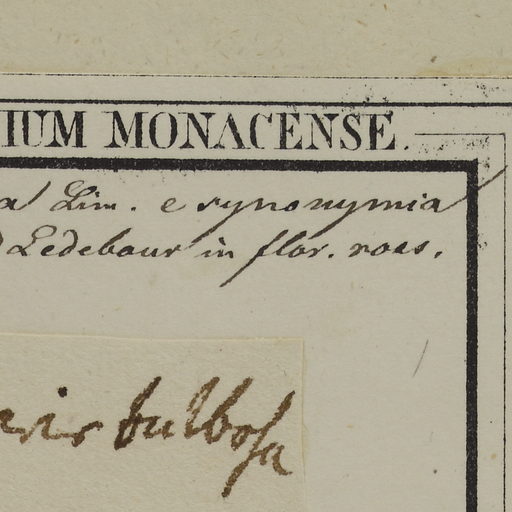 IUM MONACENSE.
a Lin. e synonymia
Ledebour in flor. ross.
bulbosa